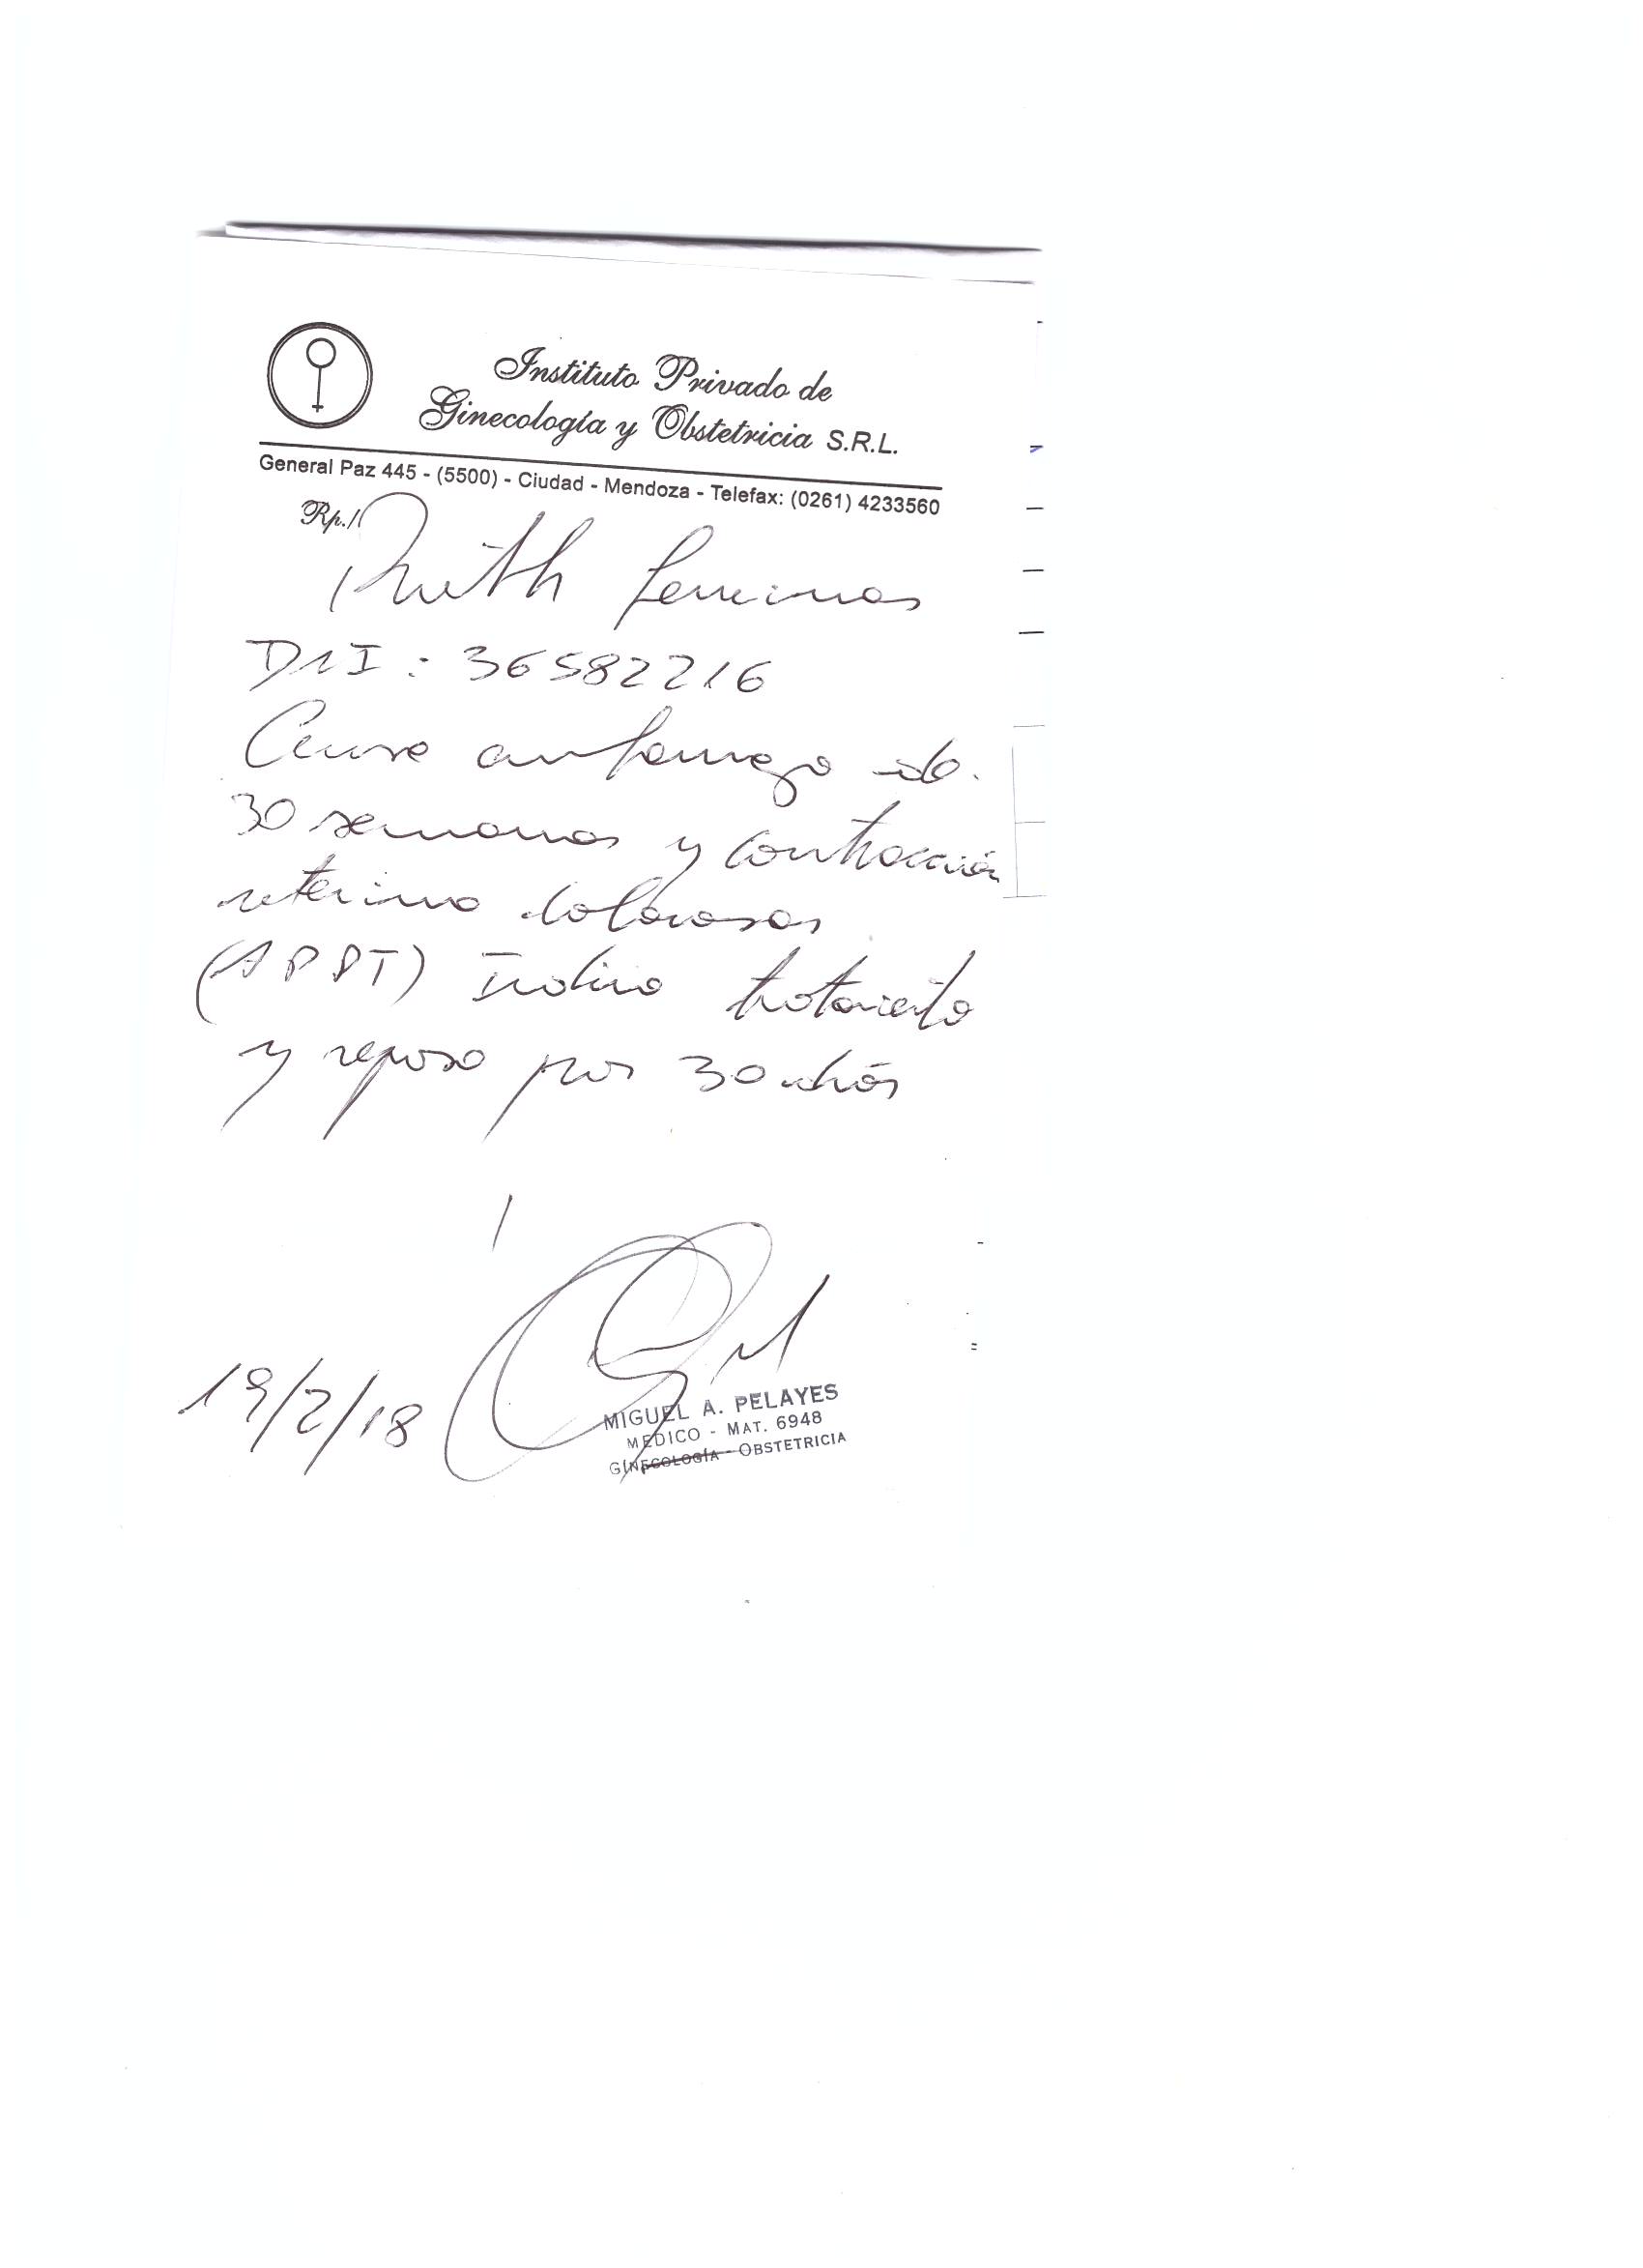 Instituto Privado de
Ginecología y Obstetricia S.R.L.
General Paz 445 - (5500) - Ciudad - Mendoza - Telefax: (0261) 4233560
Rp./
Ruth
DNI : 36582216
Cursa embarazo de
30 semanas y contracción
uterina dolorosas
(APPT) Indico tratamiento
y reposo por 30 días
19/2/18
MIGUEL A. PELAYES
MEDICO - MAT. 6948
GINECOLOGÍA - OBSTETRICIA